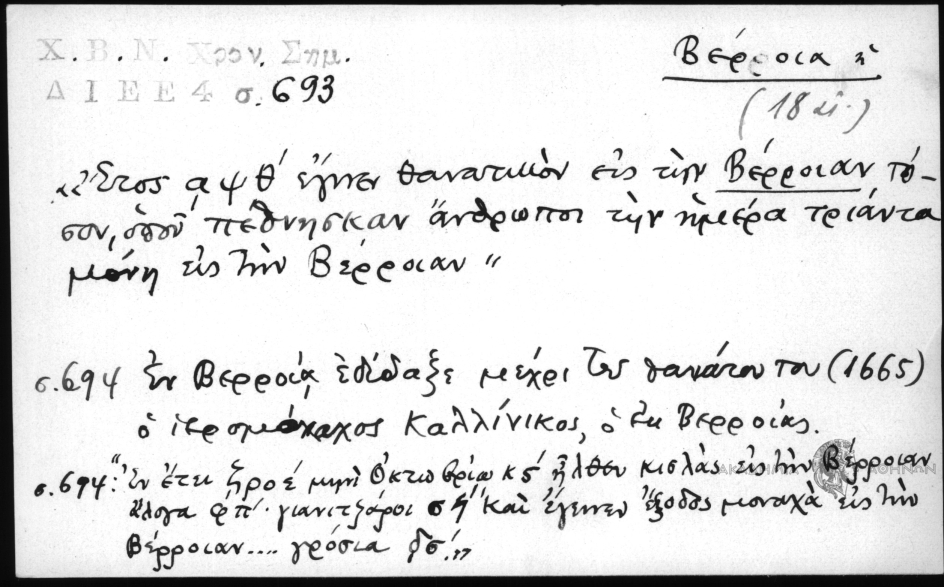 Χ. Β. Ν. Χρον. Σημ.
Δ Ι Ε Ε 4 σ. 693
Βέρροια ἡ
(18 αἰ.)
«Ἔτος ͵αψθ΄ ἔγινεν θανατικὸν εἰς τὴν Βέρροιαν τό-
σον, ὁποῦ πέθνησκαν ἄνθρωποι τὴν ἡμέρα τριάντα
μόνη εἰς τὴν Βέρροιαν"
σ. 694 Ἐν Βερροίᾳ ἐδίδαξε μέχρι τοῦ θανάτου του (1665)
ὁ ἱερομόναχος Καλλίνικος, ὁ ἐκ Βερροίας.
σ. 694: "Ἐν ἔτει ζροέ μηνὶ Ὀκτωβρίῳ κς΄ ἦλθεν κισλὰς εἰς τὴν Βέρροιαν
ἄλογα φπ΄. γιανιτζάροι ση΄ Καὶ ἔγεινεν ἔξοδος μοναχὰ εἰς τὴν
Βέρροιαν.... γρόσια